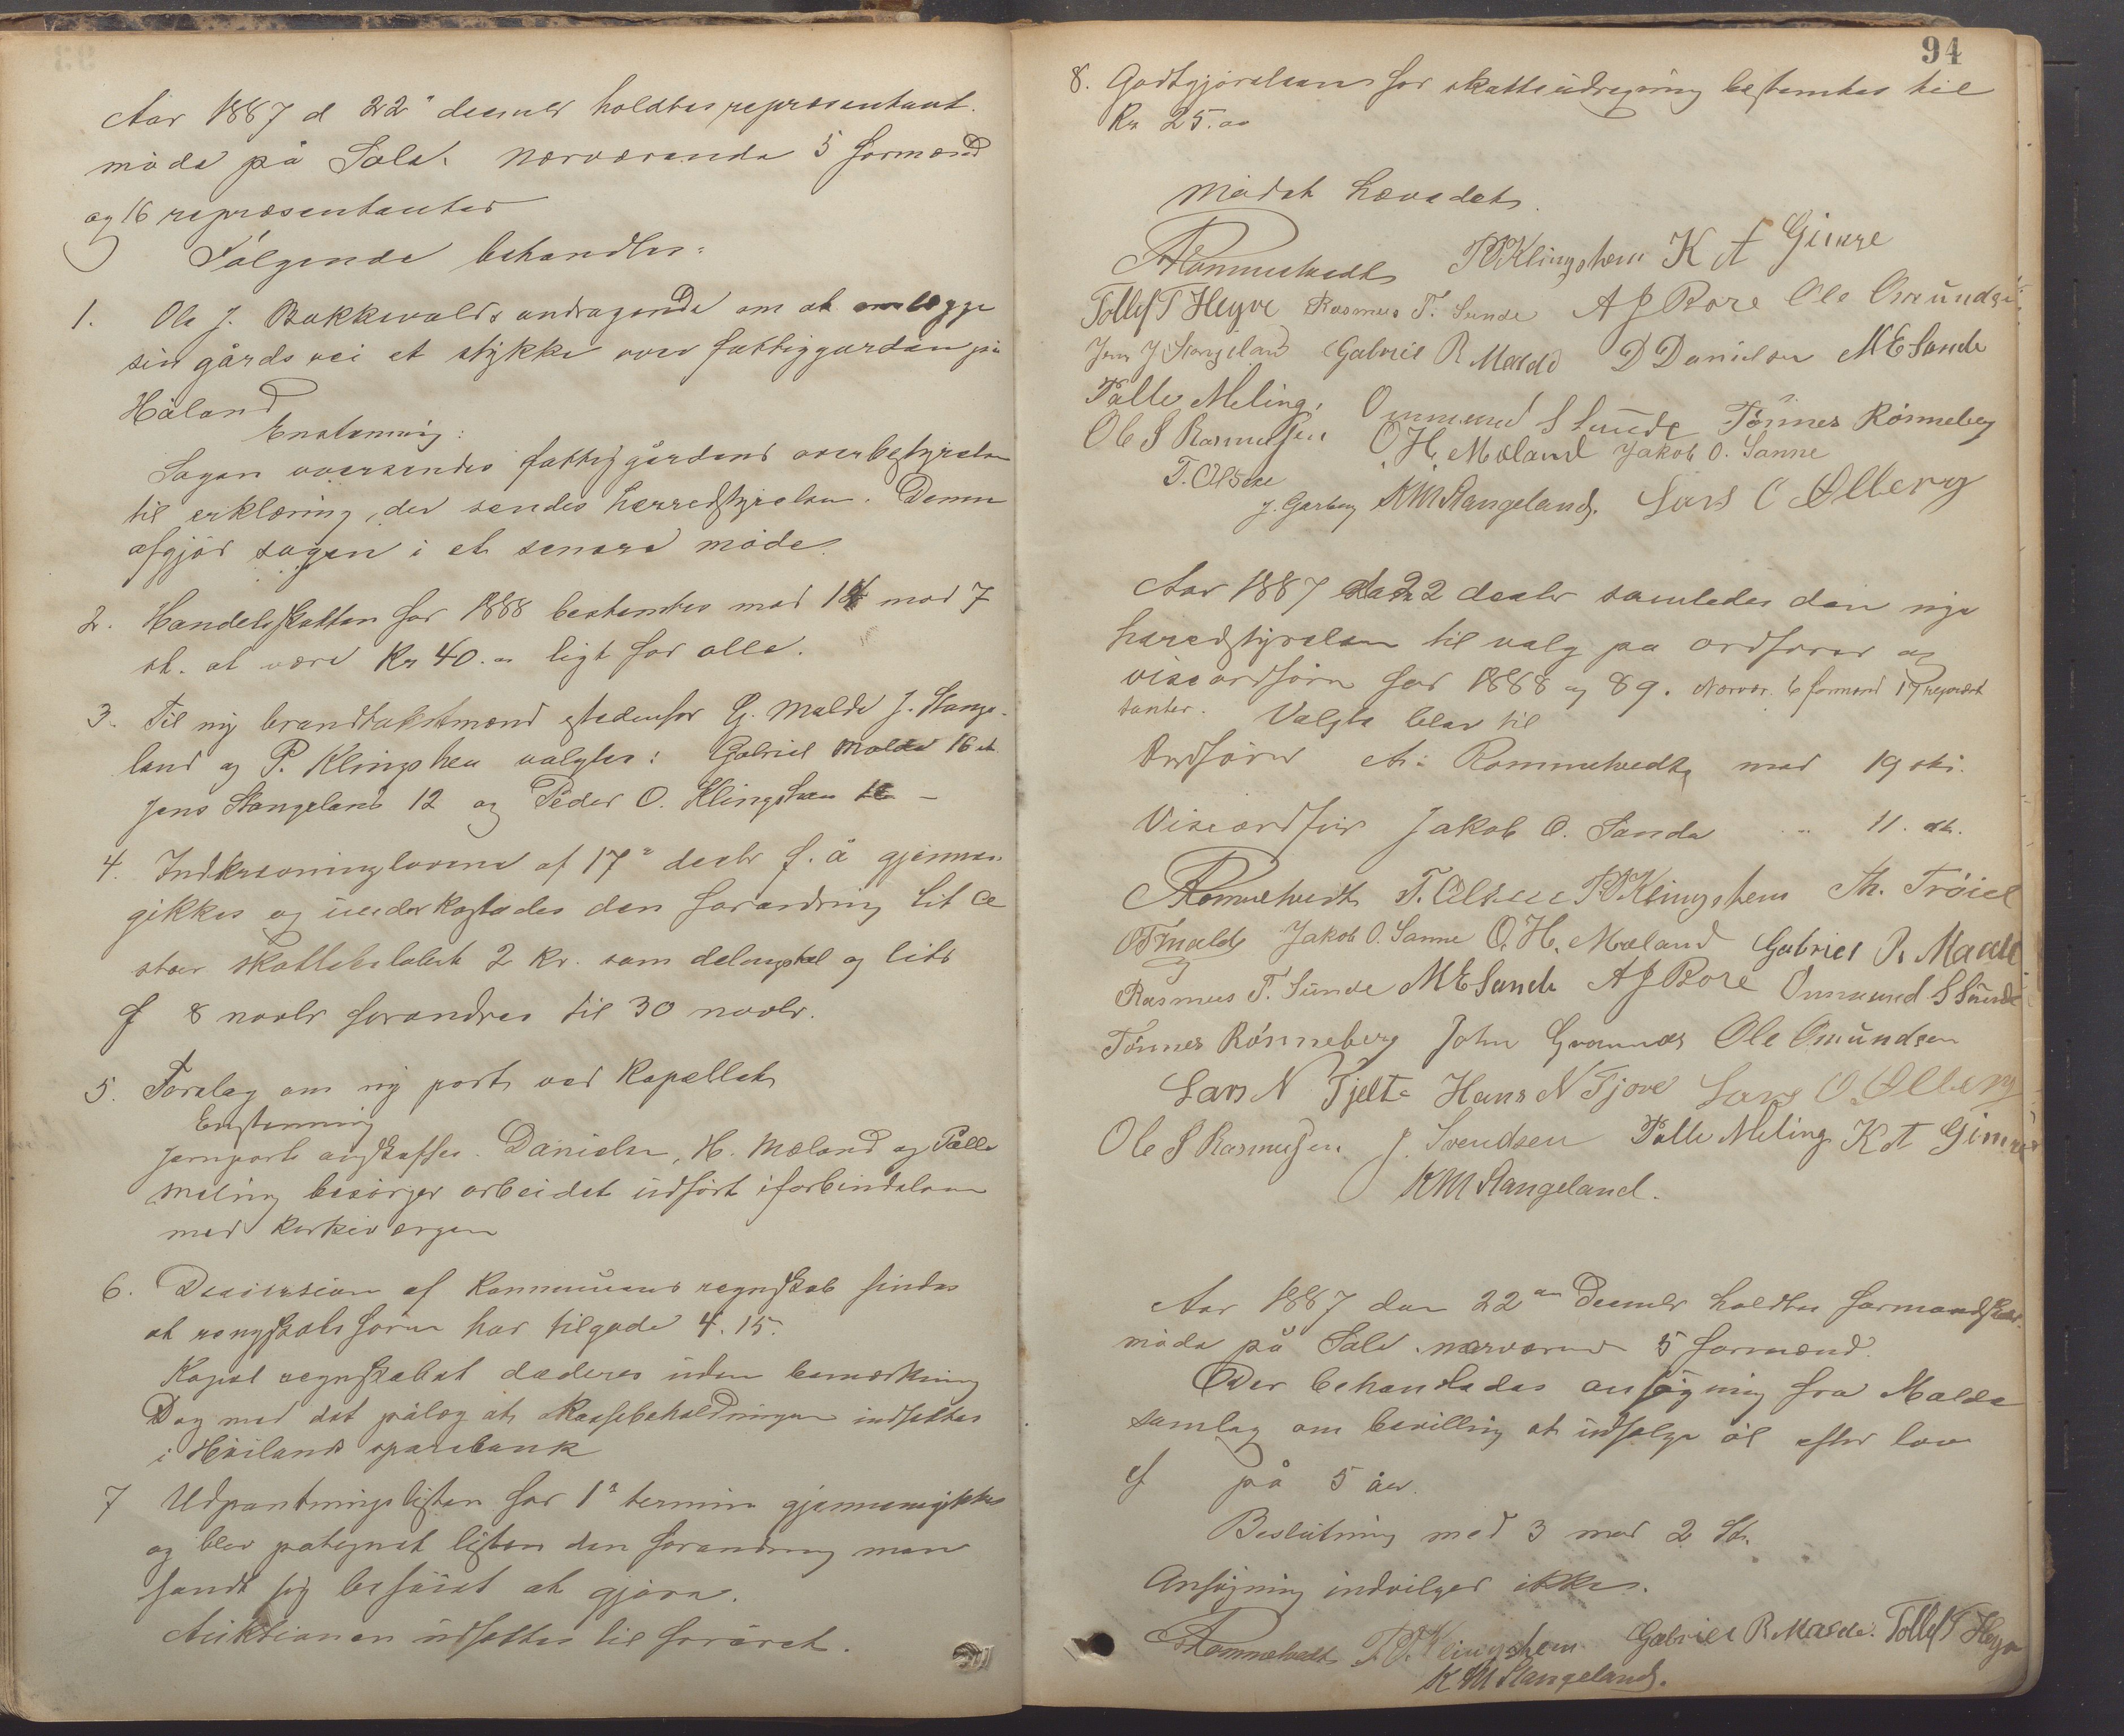 Aar 1887 d 22n decmbr holdtes repræsentant.
möde på Sola. Nærværende 5 formænd
og 16 repræsentanter
Fölgende behandles:
1. Ole J. Bakkevolds andragende om at omlægge
sin gårdsvei et stykke over fattiggarden på
Håland
Enstemmig:
Sagen oversendes fattiggårdens overbestyrelse
til erklæring, der sendes herredstyrelsen. Denne
afgjör sagen i et senere möde.
2. Handelsskatten for 1888 bestemtes med 14 mod 7
st. at være Kr 40.00 ligt for alle.
3. Til ny brandtakstmænd istedenfor G. Malde J. Stange-
land og P. Klingshem valgtes: Gabriel Malde 16 st
Jens Stangeland 12 og Peder O. Klingshem
4. Indkrævninglovene af 17n decbr f. å gjennem
gikkes og underkastedes den forandring Lit a
skattebelöbet 2 Kr. som og litr
f 8 novbr forandres til 30 novbr.
5. Forslag om ny port ved Kapellet
Enstemmig
Jernport anskaffes. Danielsen, H. Mæland og Pålle
Meling besörger arbeidet udfört i forbindelsen
med kirkeværgen
6. Decision af Kommunens regnskab findes
at rengskabsföreren har tilgode 4.15.
Kapel regnskabet dederes uden bemærkning
Dog med det pålæg at kassebeholdningen indsættes
i Höilands sparebank
7 Udpantningslisten for 1n termin gjennemgikkes
og blev påtegnet listen den forandring man
fandt sig beföiet at gjöre.
Auktionen udsættes til foråret.
94
8. Godtgjörelsen for skatteudregning bestemtes til
Kr 25.00
Mödet hævedet.
Rommetvedt P O Klingshem K A Gimre
Tollef T Heyve Rasmus T. Sunde A J Bore Ole Omundsen
Jens J Stangeland Gabriel R Malde D Danielsen M E Sande
Palle Meling, Ommund S Sunde Tönnes Rönneberg
Ole S Rasmussen O. H. Mæland Jakob O. Sanne
T. Olsen
J. Garborg K M Stangeland. Lars O Ølberg
Aar 1887 den 22 decbr samledes den nye
herredstyrelsen til valg på ordförer og
viseordförer for 1888 og 89. Nærvær. 6 formænd 17 repræsen
tanter. Valgte blev til
Ordförer A. Rommetvedt med 19 st.
Viseordförer Jakob O. Sande " 11. st.
Rommetvedt T. Olsen P O Klingshem
Jakob O. Sanne O. H. Mæland Gabriel R. Malde
Rasmus T. Sunde M E Sande A J Bore Ommund S Sunde
Tönnes Rönneberg John Grannes Ole Omundsen
Lars N Tjelte Hans N Tjore Lars O. Ølberg
Ole S Rasmussen J. Svendsen Palle Meling K A Gimre
K M Stangeland.
Aar 1887 den 22en Decmbr holdtes formandskabs-
möde på Sole. nærværende 5 formænd.
Der behandledes ansögning fra Malde
samlag om bevilling at udsælge öl efter lov
af på 5 år.
Beslutning med 3 mod 2 St.
Ansögning indvilges ikke.
Rommetvedt P O Klingshem Gabriel R Malde. Tollef T Heyve
K M Stangeland.